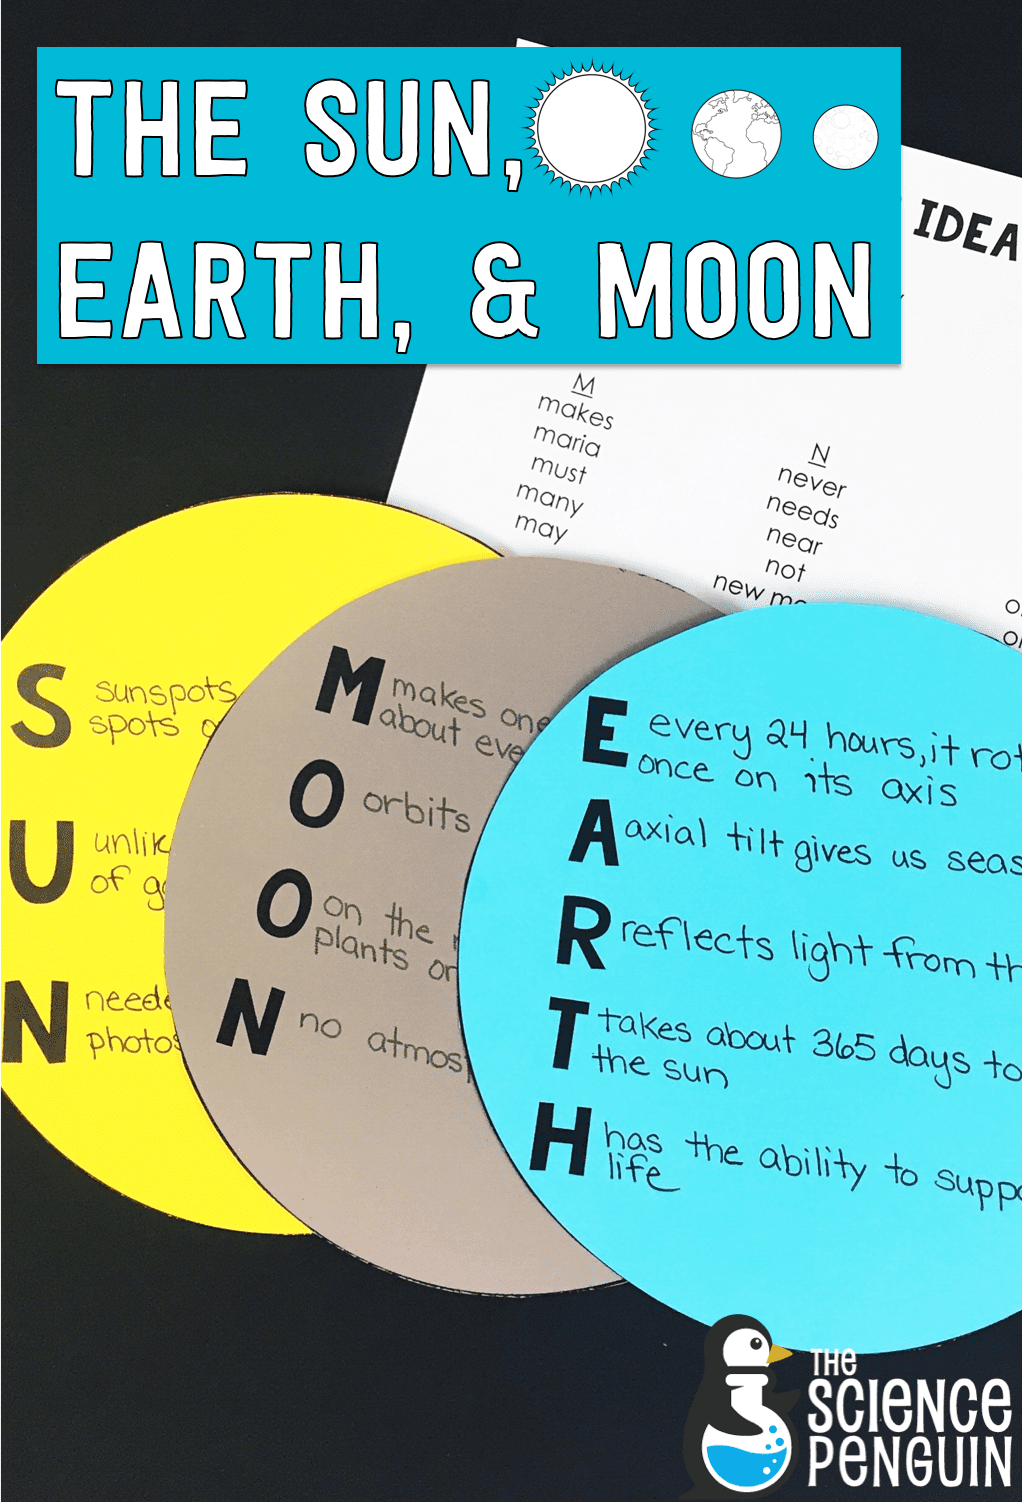 THE SUN,
EARTH, & MOON
IDEA
M
makes
maria
must
many
may
N
never
needs
near
not
new
S sunspots
spots
U
of
N
M makes one
about
O orbits
O on the
plants
N no
E every 24 hours, it
once on its axis
A axial tilt gives us
R reflects light from
T takes about 365 days to
the sun
H has the ability to
life
THE
SCIENCE
PENGUIN